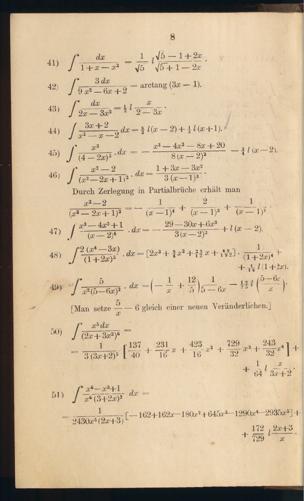 8
41) ∫ dx / (1 + x − x²) = 1/√5 l (√5 − 1 + 2x) / (√5 + 1 − 2x).
42) ∫ 3 dx / (9x² − 6x + 2) = arctang (3x − 1).
43) ∫ dx / (2x − 3x²) = ½ l x / (2 − 3x).
44) ∫ (3x + 2) / (x² − x − 2) dx = l (x − 2) + l (x + 1).
45) ∫ x³ / (4 − 2x)³ . dx = − (x³ − 4x² − 8x + 20) / (8 (x − 2)²) − l (x − 2).
46) ∫ (x² − 2) / (x² − 2x + 1)² . dx = − (1 + 3x − 3x²) / (3 (x − 1)³).
Durch Zerlegung in Partialbrüche erhält man
(x² − 2) / (x² − 2x + 1)² = − 1 / (x − 1)⁴ + 2 / (x − 1)³ + 1 / (x − 1)².
47) ∫ (x³ − 4x² + 1) / (x − 2)⁴ . dx = (29 − 30x + 6x²) / (3 (x − 2)³) + l (x − 2).
48) ∫ 2 (x⁴ − 3x) / (1 + 2x)⁵ . dx = . 1 / (1 + 2x)⁴ +
+ l (1 + 2x).
49) ∫ 5 / (x² (5 − 6x)²) . dx = (− 1/x + 12/5) 1 / (5 − 6x) − l ((5 − 6x) / x).
[Man setze 5/x − 6 gleich einer neuen Veränderlichen.]
50) ∫ x⁵ dx / (2x + 3x²)⁶ =
= 1 / (3 (3x + 2)⁵) [137/40 + 231/16 x + 423/16 x² + 729/32 x³ + 243/32 x⁴] +
+ 1/64 l x / (3x + 2).
51) ∫ (x⁴ − x² + 1) / (x⁴ (3 + 2x)²) dx =
= 1 / (2430x⁵ (2x + 3)) [−162 + 162x − 180x² + 645x³ − 1290x⁴ − 2935x⁵] +
+ 172/729 l (2x + 3) / x.